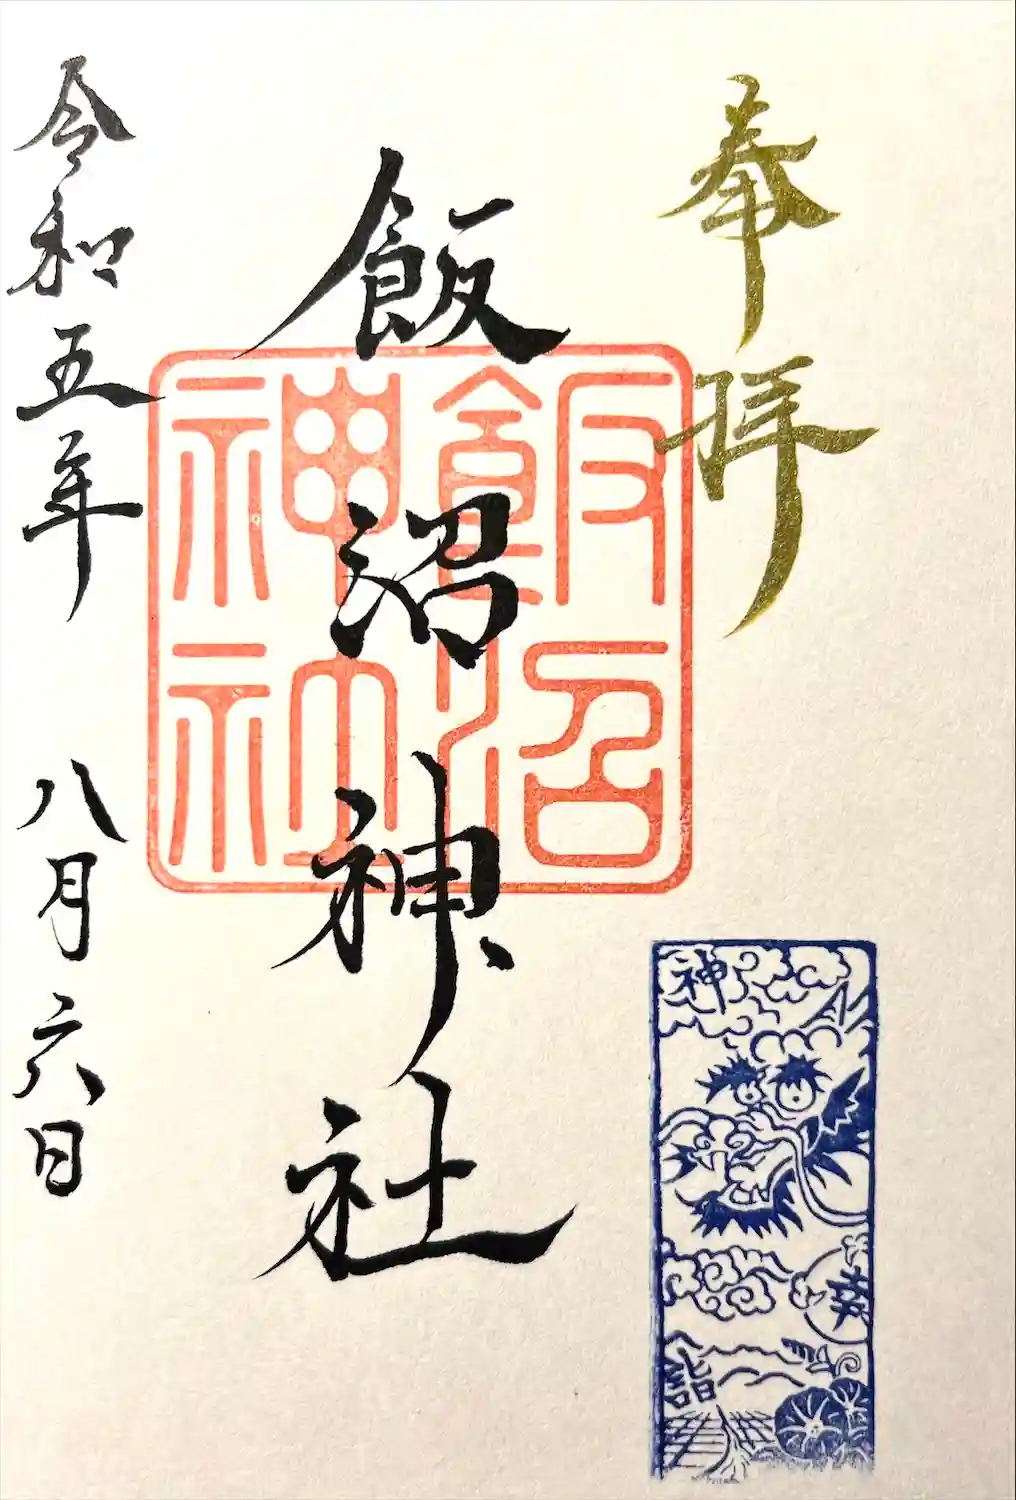 奉拝
飯沼神社
飯沼
神社
令和五年 八月六日
神
幸
詣